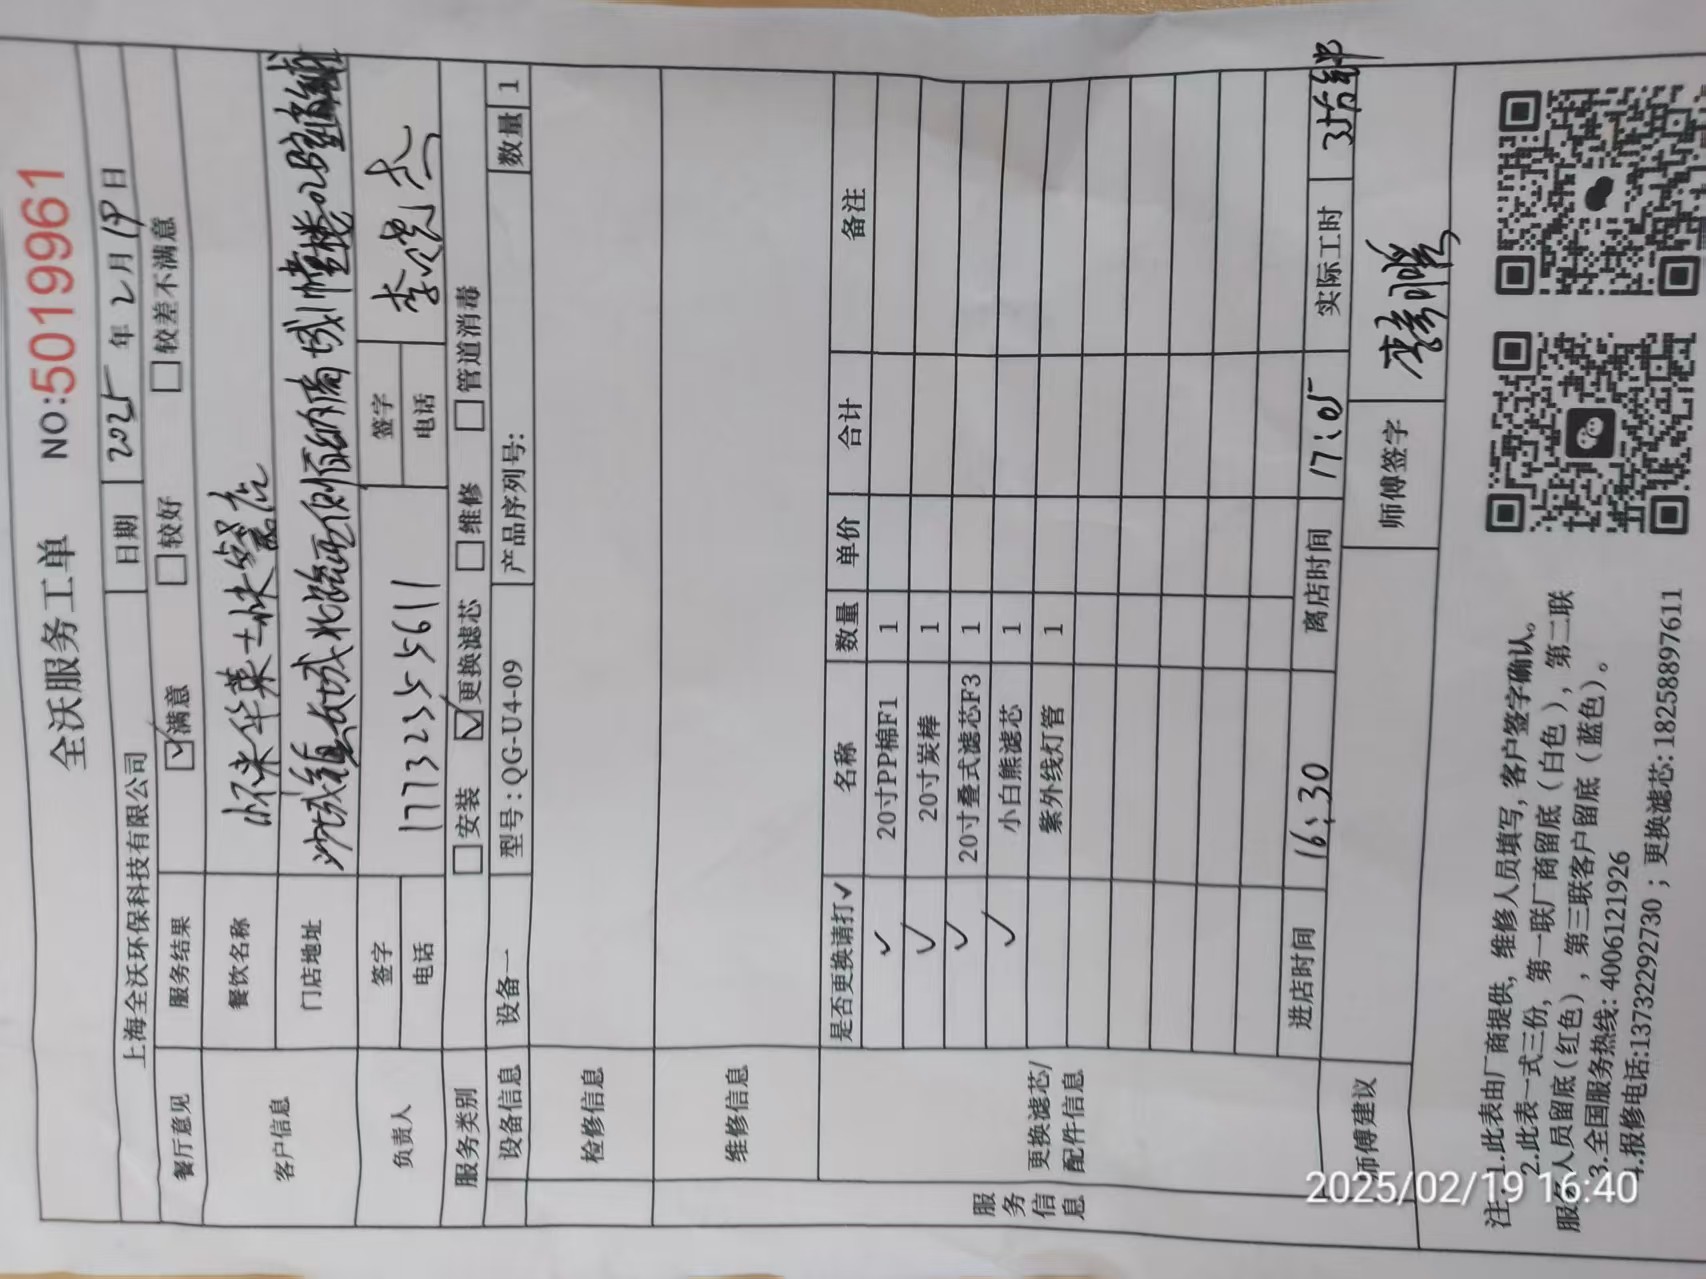 全沃服务工单 NO:5019961
上海全沃环保科技有限公司 日期 2025 年 2 月 19 日
餐厅意见 服务结果 ☑满意 ☐较好 ☐较差不满意
客户信息 餐饮名称 怀来华莱士快餐店
门店地址 沙城镇长城北路西侧
负责人 签字 签字 李
电话 17732355611 电话
服务类别 ☐安装 ☑更换滤芯 ☐维修 ☐管道消毒
设备信息 设备一 型号:QG-U4-09 产品序列号: 数量 1
检修信息
维修信息
服务信息
更换滤芯/配件信息
是否更换请打✓ 名称 数量 单价 合计 备注
✓ 20寸PP棉F1 1
✓ 20寸炭棒 1
✓ 20寸叠式滤芯F3 1
✓ 小白熊滤芯 1
紫外线灯管 1
进店时间 16:30 离店时间 17:05 实际工时 35分钟
师傅建议 师傅签字 李
注:1.此表由厂商提供，维修人员填写，客户签字确认。
2.此表一式三份，第一联厂商留底（白色），第二联
服务人员留底(红色），第三联客户留底（蓝色）。
3.全国服务热线: 4006121926
4.报修电话:13732292730；更换滤芯:18258897611
2025/02/19 16:40